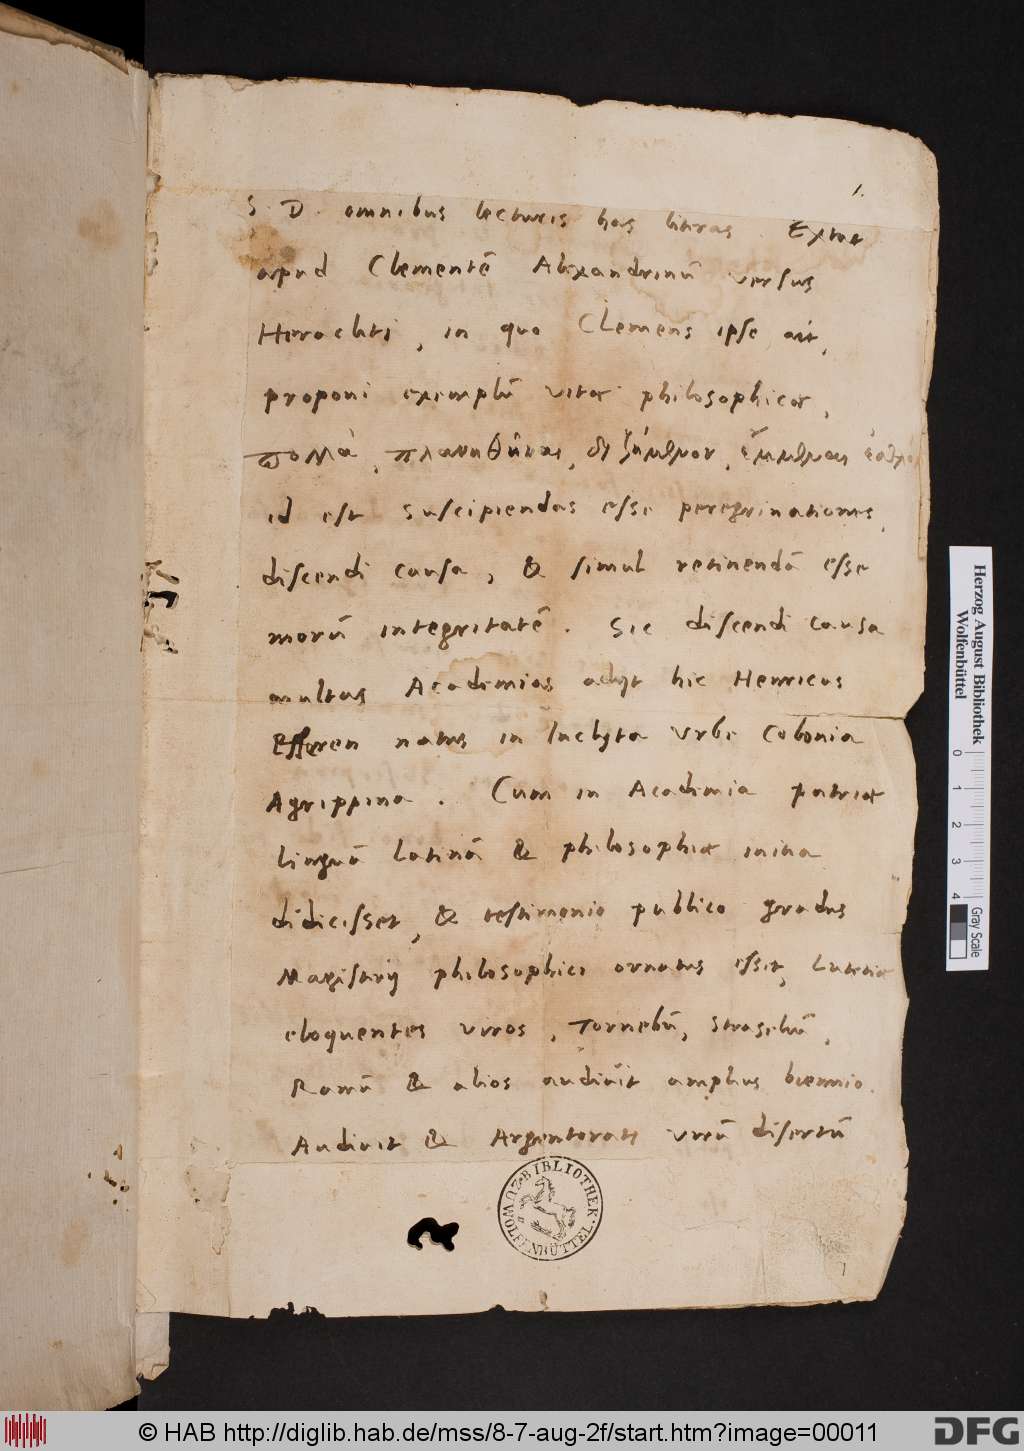 1.
S. D. omnibus lecturis has literas. Extat
apud Clementē Alexandrinū versus
Heracliti, in quo Clemens ipse ait,
proponi exemplū vitæ philosophicæ,
πολλὰ πλανηθῆναι, διζήμενον, ἔμμεναι ἐσθλὸν
id est suscipiendas esse peregrinationes,
discendi causa, & simul retinendā esse
morū integritatē. Sic discendi causa
multas Academias adijt hic Henricus
Efferen natus in Inclyta Vrbe Colonia
Agrippina. Cum in Academia patriæ
linguā latinā & philosophiæ initia
didicisset, & testimonio publico gradus
Magisterij philosophici ornatus esset, Lutetiæ
eloquentes viros, Tornebū, Straselium,
Ramū & alios audivit amplius biennio.
Audivit & Argentorati virū disertū
BIBLIOTHEK ZU WOLFENBÜTTEL
Herzog August Bibliothek
Wolfenbüttel
0 1 2 3 4
Gray Scale
© HAB http://diglib.hab.de/mss/8-7-aug-2f/start.htm?image=00011
DFG